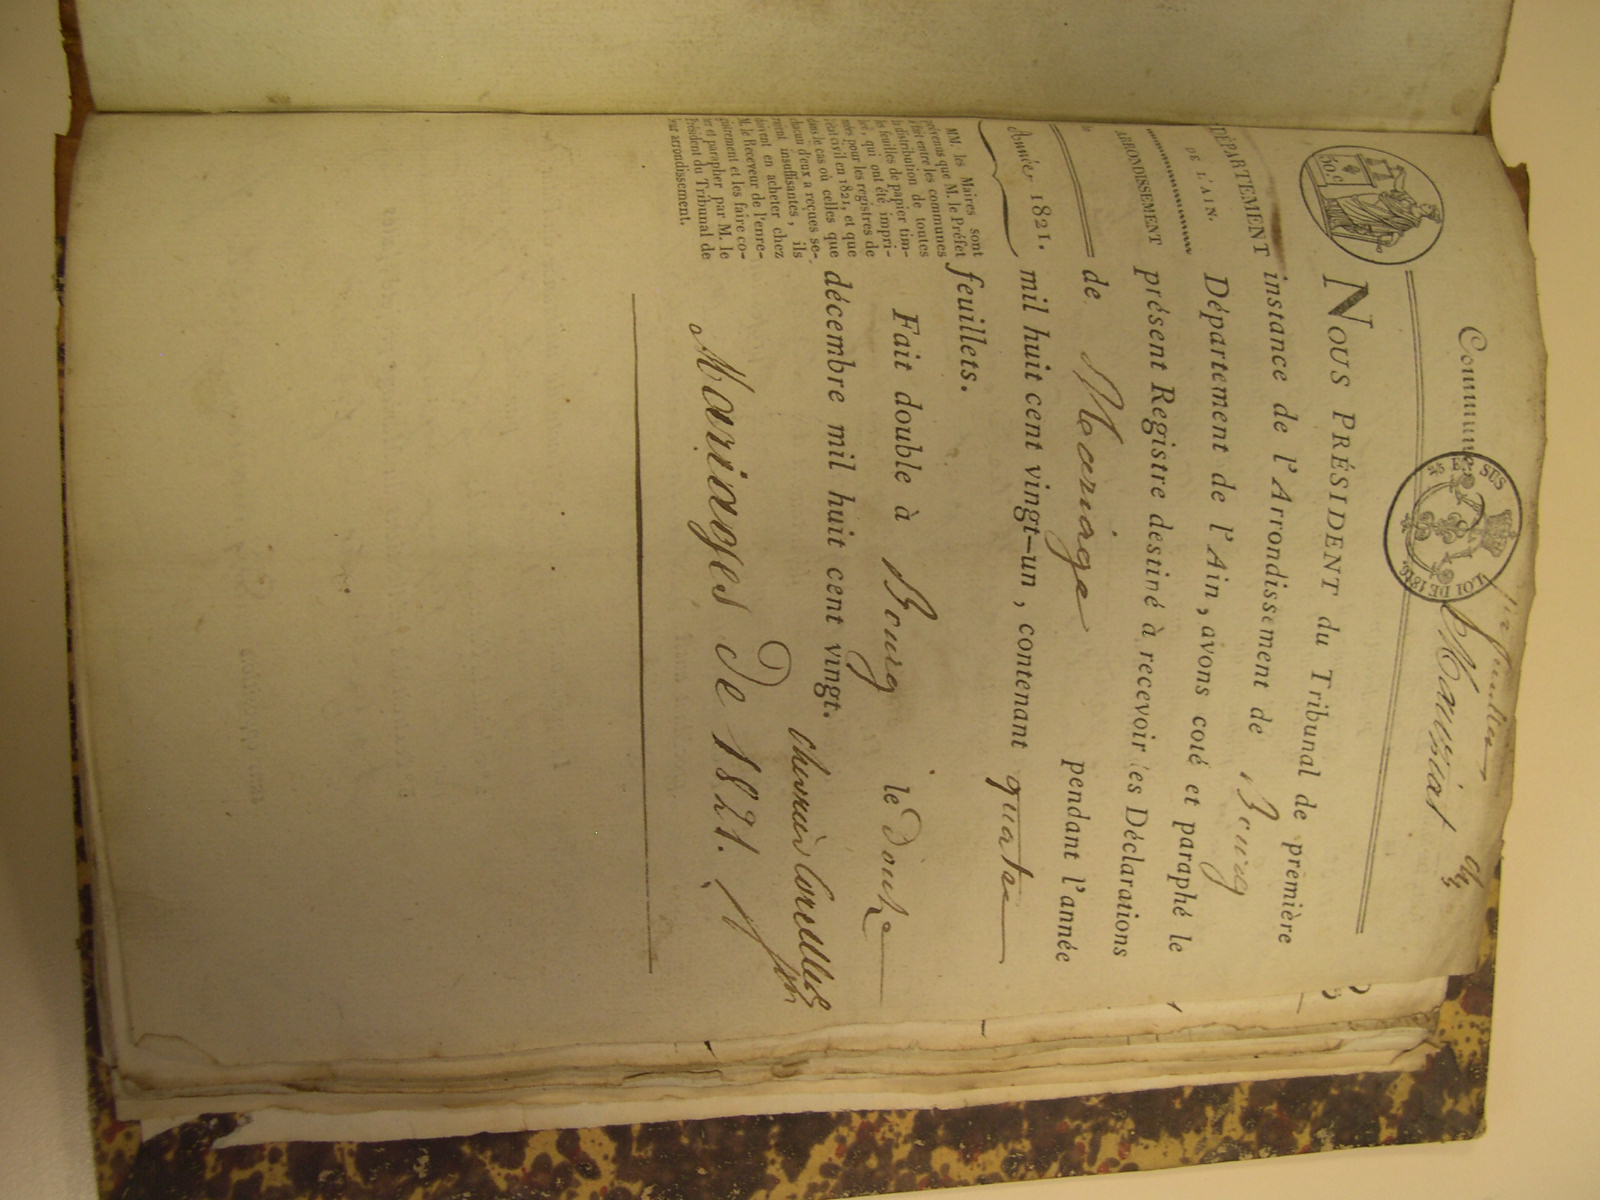 Commune
Mansiat
25 EN SUS
LOI DE 1816.
50 C
DÉPARTEMENT
DE L'AIN.
ARRONDISSEMENT
Année 1821.
MM. les Maires sont
prévenus que M. le Préfet
a fait entre les communes
la distribution de toutes
les feuilles de papier tim-
bré, qui ont été impri-
mées pour les registres de
l'état civil en 1821, et que
dans le cas où celles que
chacun d'eux a reçues se-
raient insuffisantes, ils
doivent en acheter chez
M. le Receveur de l'enre-
gistrement et les faire co-
ter et parapher par M. le
Président du Tribunal de
leur arrondissement.
NOUS PRÉSIDENT du Tribunal de première
instance de l'Arrondissement de Bourg
Département de l'Ain, avons coté et paraphé le
présent Registre destiné à recevoir les Déclarations
de Mariage pendant l'année
mil huit cent vingt-un, contenant quatre
feuillets.
Fait double à Bourg le Douze
décembre mil huit cent vingt.
Mariages de 1821.